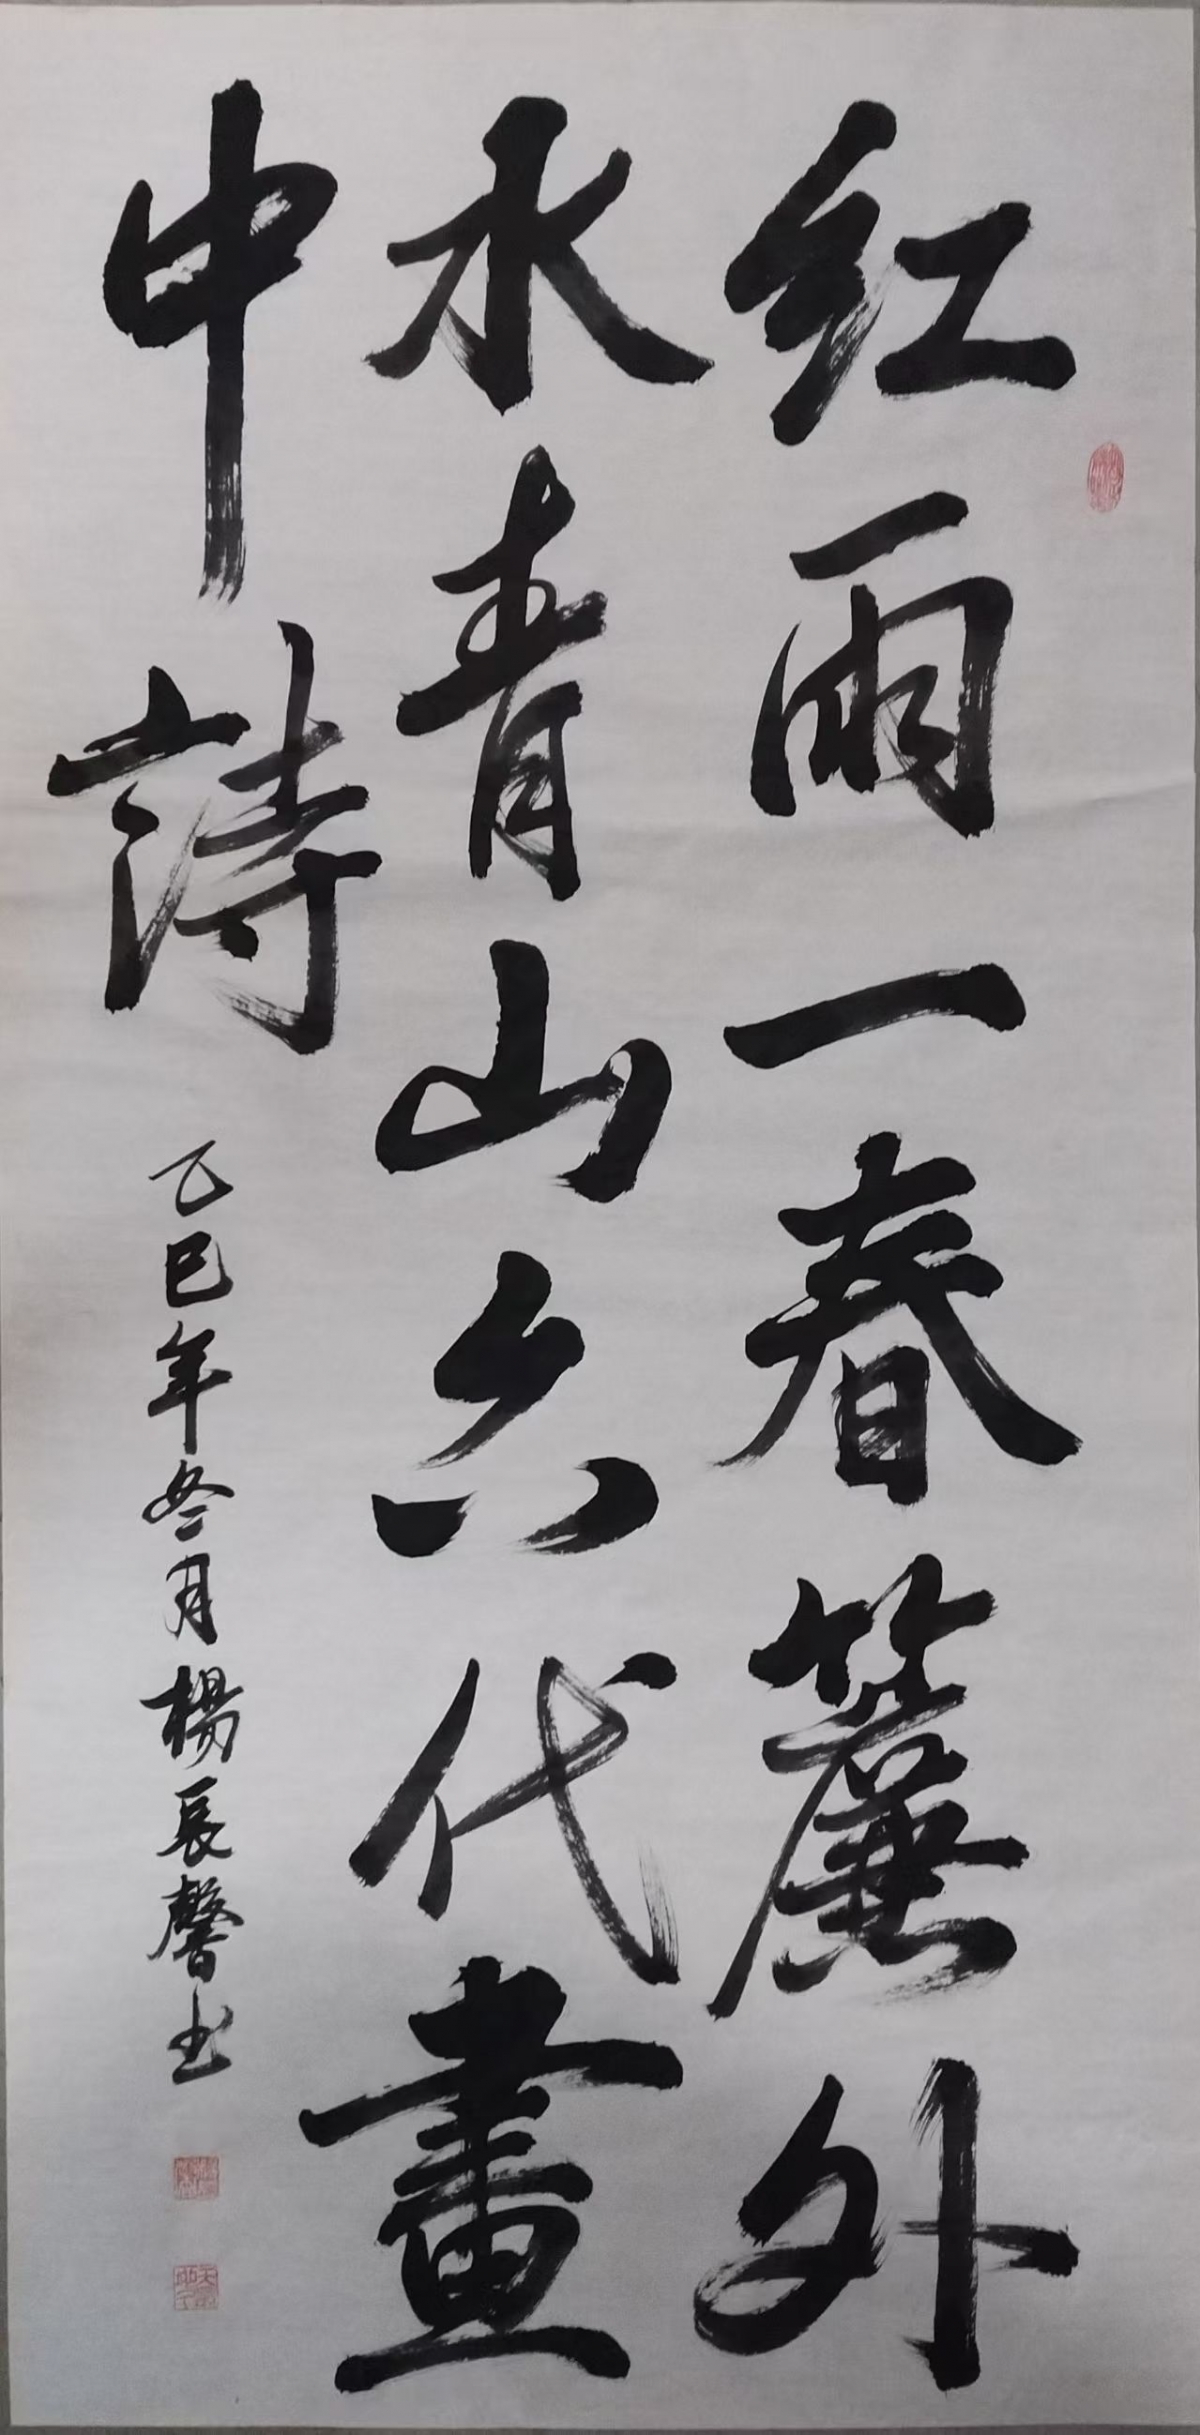 红雨一春簾外
水青山六代畫
中詩
乙巳年冬月楊長馨书